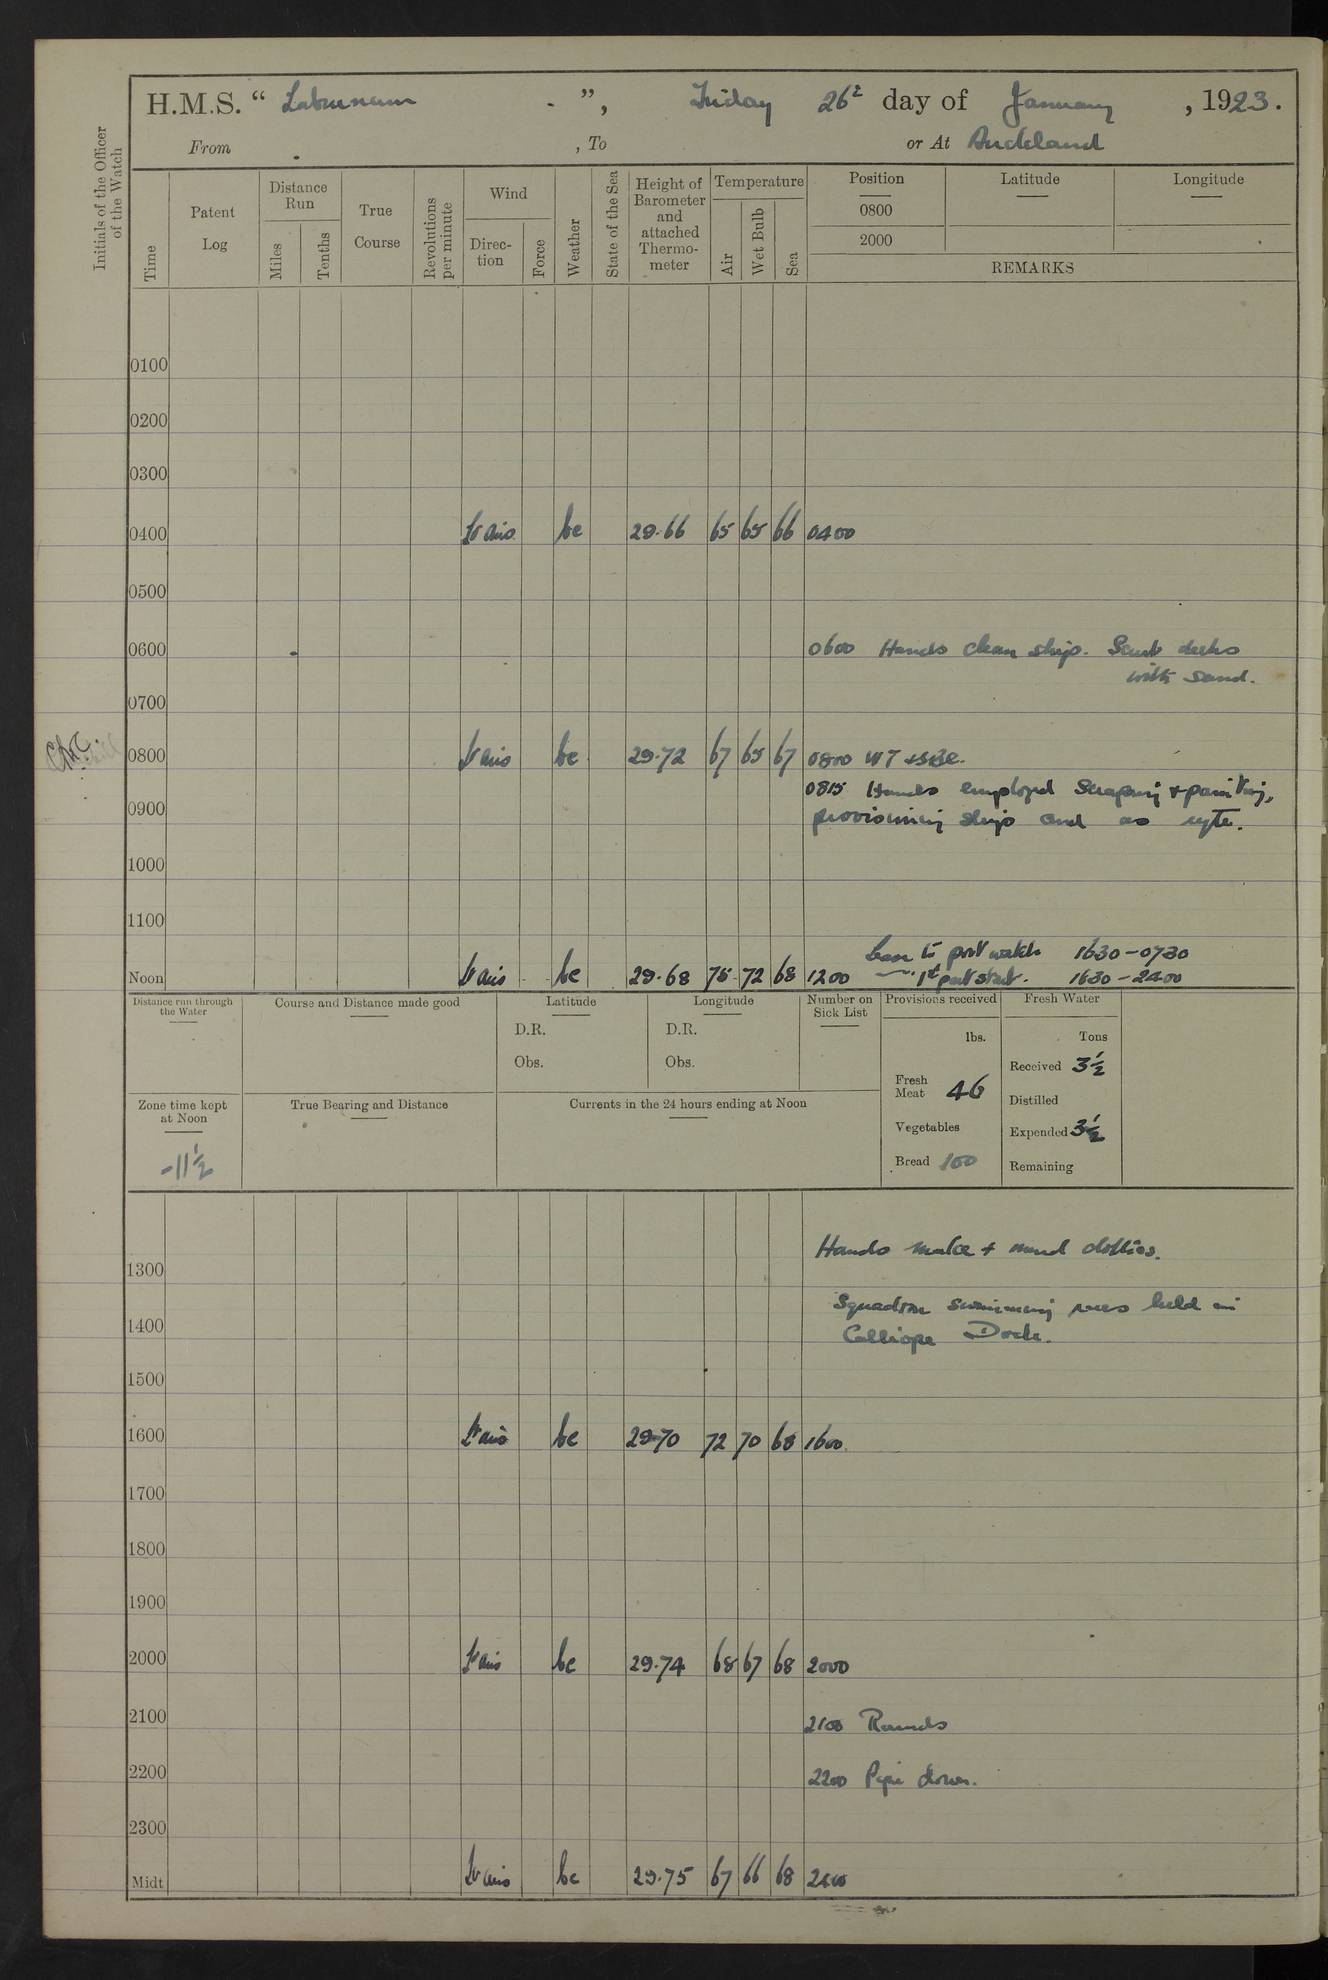 H.M.S. “ Laburnum ”, Friday 26th day of January, 1923.
From , To or At Auckland
Initials of the Officer of the Watch
Time
Patent Log
Distance Run
Miles
Tenths
True Course
Revolutions per minute
Wind
Direc- tion
Force
Weather
State of the Sea
Height of Barometer and attached Thermo- meter
Temperature
Air
Wet Bulb
Sea
Position Latitude Longitude
0800
2000
REMARKS
0100
0200
0300
0400 Lt airs bc 29.66 65 65 66 0400
0500
0600 0600 Hands clean ship. Scrub decks
with sand.
0700
0800 Lt airs bc 29.72 67 65 67 0800
0815 Hands employed scraping + painting,
0900 provisioning ship and as reqte.
1000
1100
Leave to port watch 1630-0730
Noon Lt airs bc 29.68 75 72 68 1200 1st part starb. 1630-2400
Distance run through the Water
Course and Distance made good
Latitude
D.R.
Obs.
Longitude
D.R.
Obs.
Number on Sick List
Provisions received
lbs.
Fresh Meat 46
Vegetables
Bread 100
Fresh Water
Tons
Received 3½
Distilled
Expended 3½
Remaining
Zone time kept at Noon
-11½
True Bearing and Distance
Currents in the 24 hours ending at Noon
Hands make + mend clothes.
1300
Squadron swimming races held in
1400 Calliope Dock.
1500
1600 Lt airs bc 29.70 72 70 68 1600
1700
1800
1900
2000 Lt airs bc 29.74 68 67 68 2000
2100 2100 Rounds
2200 2200 Pipe down.
2300
Midt Lt airs bc 29.75 67 66 68 2400